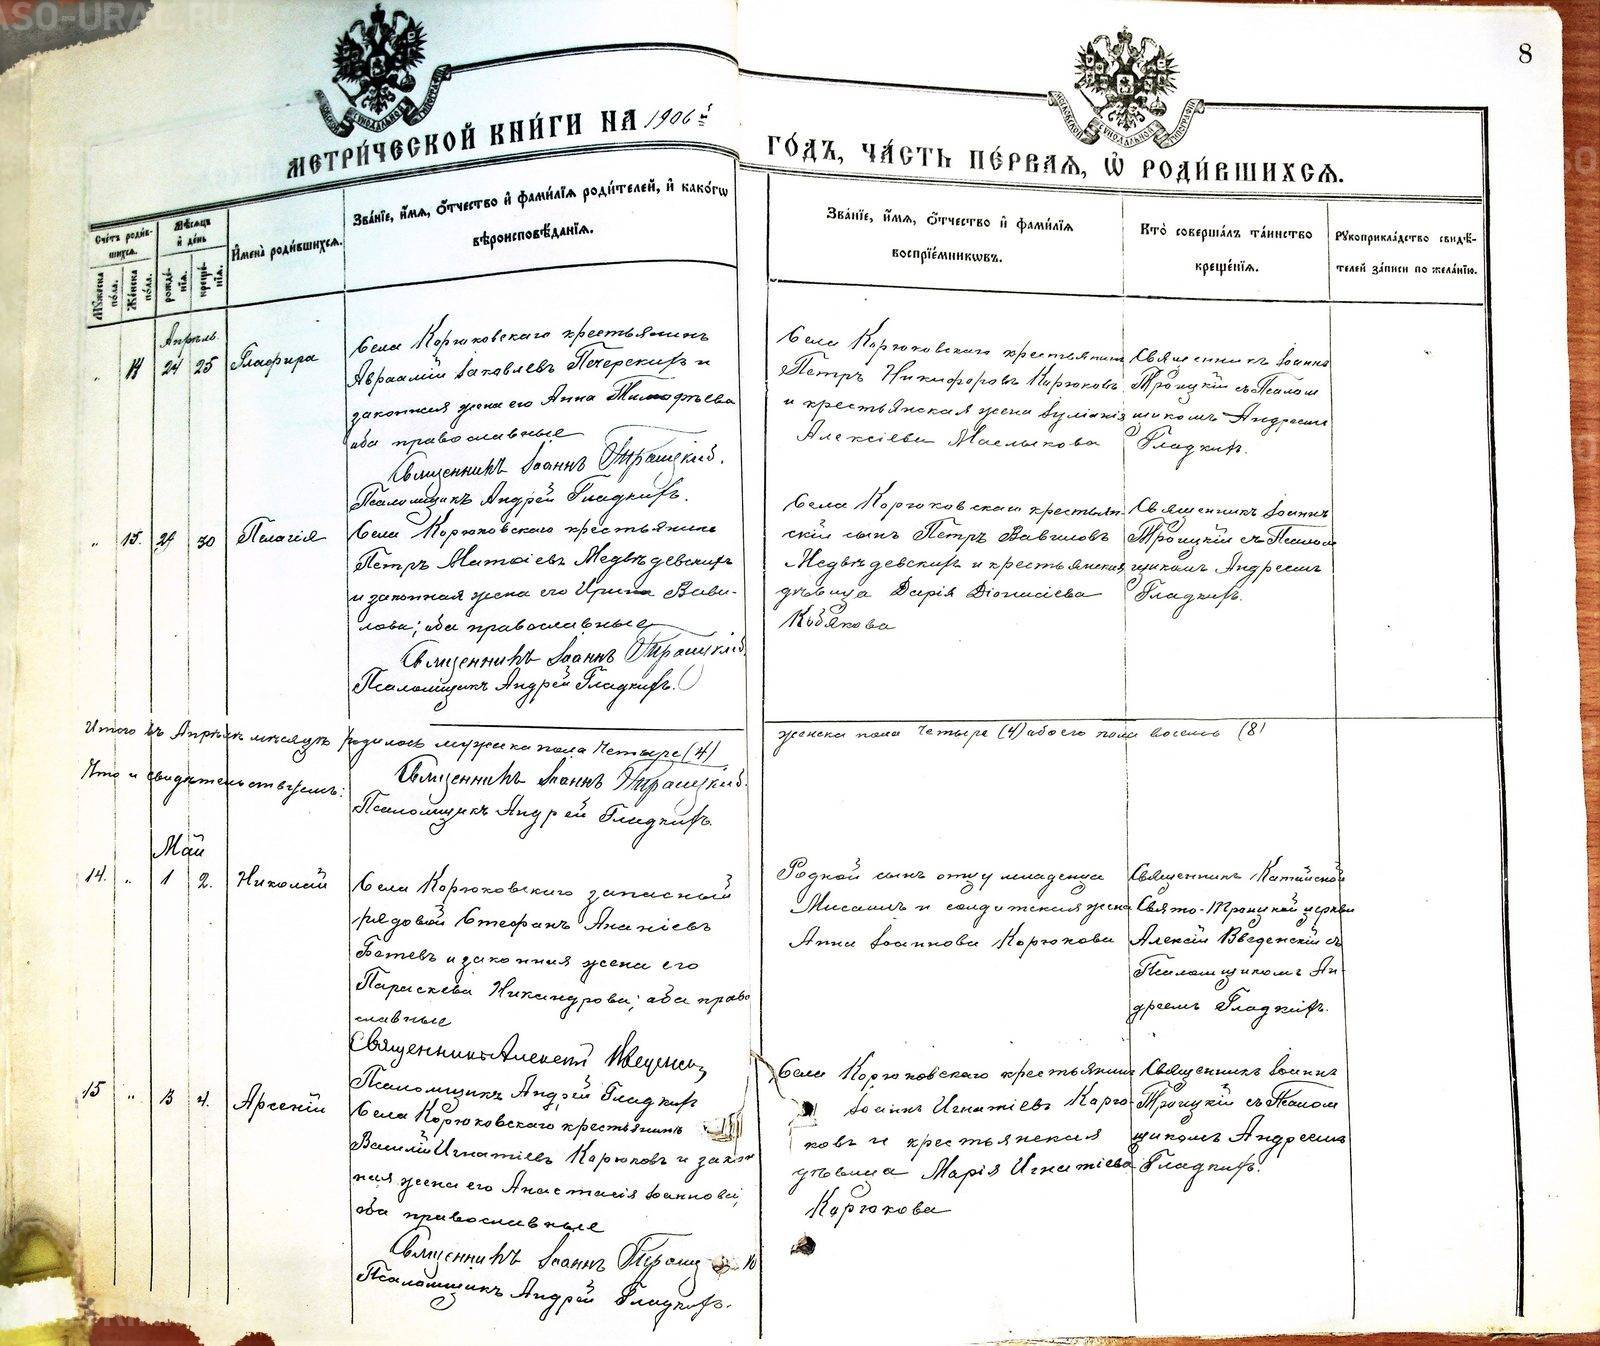 8
МЕТРИ́ЧЕСКОЙ КНИ́ГИ НА 1906 й
ГО́ДЪ, ЧА́СТЬ ПЕ́РВАЯ, Ѡ РОДИ́ВШИХСЯ.
Сче́тъ роди́в-
шихся.
Мꙋжеска по́ла.
Же́нска по́ла.
Мѣ́сяцъ и де́нь
рожде́-
нїя.
креще́-
нїя.
И҆мена̀ роди́вшихся.
Зва́нїе, и҆́мя, ѻ҆́тчество и҆ фами́лїя роди́телей, и҆ како́гѡ
вѣроисповѣ́данїя.
Зва́нїе, и҆́мя, ѻ҆́тчество и҆ фами́лїя
воспрїе́мникѡвъ.
Кто̀ соверша́лъ та́инство
креще́нїя.
Рꙋкоприкла́дство свидѣ́-
телей за́писи по жела́нїю.
Апрѣль
" 14 24 25 Глафира
Села Корюковскаго крестьянинъ
Авраамій Іаковлевъ Печерскихъ и
законная жена его Анна Тимофѣева
оба православные
Священникъ Іоаннъ Троицкій.
Псаломщикъ Андрей Гладкихъ.
Села Корюковскаго крестьянинъ
Петръ Никифоровъ Корюковъ
и крестьянская жена Іуліанія
Алексіева Маслыкова
Священникъ Іоаннъ
Троицкій съ Псалом
щикомъ Андреемъ
Гладкихъ.
" 15. 29 30 Пелагія
Села Корюковскаго крестьянинъ
Петръ Матѳіевъ Медвѣдевскихъ
и законная жена его Ирина Вави-
лова; оба православные
Священникъ Іоаннъ Троицкій.
Псаломщикъ Андрей Гладкихъ.
Села Корюковскаго крестьян-
скій сынъ Петръ Вавиловъ
Медвѣдевскихъ и крестьянская
дѣвица Дарія Діонисіева
Кобякова
Священникъ Іоаннъ
Троицкій съ Псалом
щикомъ Андреемъ
Гладкихъ.
Итого въ Апрѣлѣ мѣсяцѣ родилось мужска пола четыре (4)
женска пола четыре (4) обоего пола восемь (8)
Что и свидѣтельствуемъ:
Священникъ Іоаннъ Троицкій.
Псаломщикъ Андрей Гладкихъ.
Май
14. " 1 2. Николай
Села Корюковскаго запасный
рядовой Стефанъ Ананіевъ
Батевъ и законная жена его
Параскева Никандрова; оба право
славные
Священникъ Алексѣй Введенскій
Псаломщикъ Андрей Гладкихъ
Родной сынъ отцу младенца
Мисаилъ и солдатская жена
Анна Іоаннова Корюкова
Священникъ Катайской
Свято-Троицкой церкви
Алексій Введенскій съ
Псаломщикомъ Ан-
дреемъ Гладкихъ.
15 " 3 4. Арсеній
Села Корюковскаго крестьянинъ
Василій Игнатіевъ Корюковъ и закон
ная жена его Анастасія Іоаннова;
оба православные
Священникъ Іоаннъ Троиц
Псаломщикъ Андрей Гладкихъ.
Села Корюковскаго крестьянинъ
Іоаннъ Игнатіевъ Корю-
ковъ и крестьянская
дѣвица Марія Игнатіева
Корюкова
Священникъ Іоаннъ
Троицкій съ Псалом
щикомъ Андреемъ
Гладкихъ.